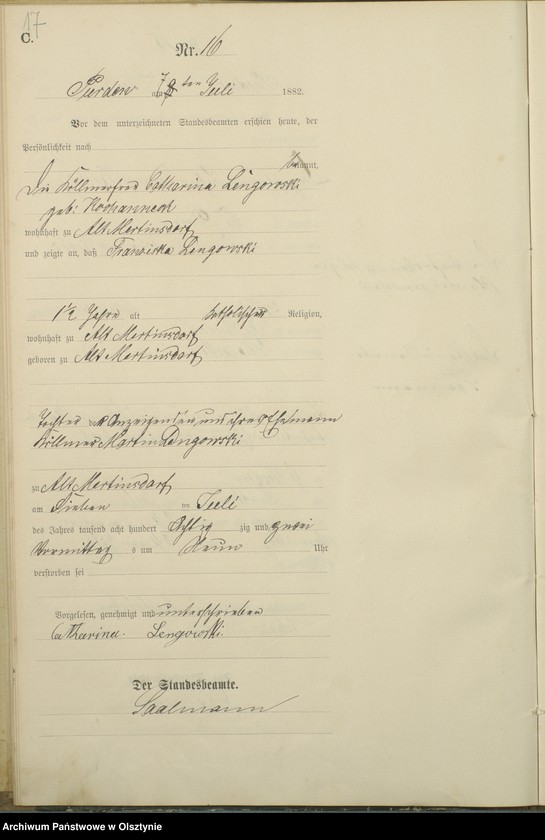 17
C.
Nr. 16
Purden am 7 ten Juli 1882.
Vor dem unterzeichneten Standesbeamten erschien heute, der
Persönlichkeit nach
bekannt,
die Köllmerfrau Catharina Lengowski
geb: Kochanneck
wohnhaft zu Alt Mertinsdorf
und zeigte an, daß Franziska Lengowski
1 1/2 Jahre alt katholischer Religion,
wohnhaft zu Alt Mertinsdorf
geboren zu Alt Mertinsdorf
Tochter der Anzeigenden und ihres Ehemann
Köllmer Martin Lengowski
zu Alt Mertinsdorf
am Sieben ten Juli
des Jahres tausend acht hundert Achtzig zig und zwei
Vormittag s um Neun Uhr
verstorben sei
Vorgelesen, genehmigt und unterschrieben
Catharina Lengowski
Der Standesbeamte.
Saalmann
Archiwum Państwowe w Olsztynie